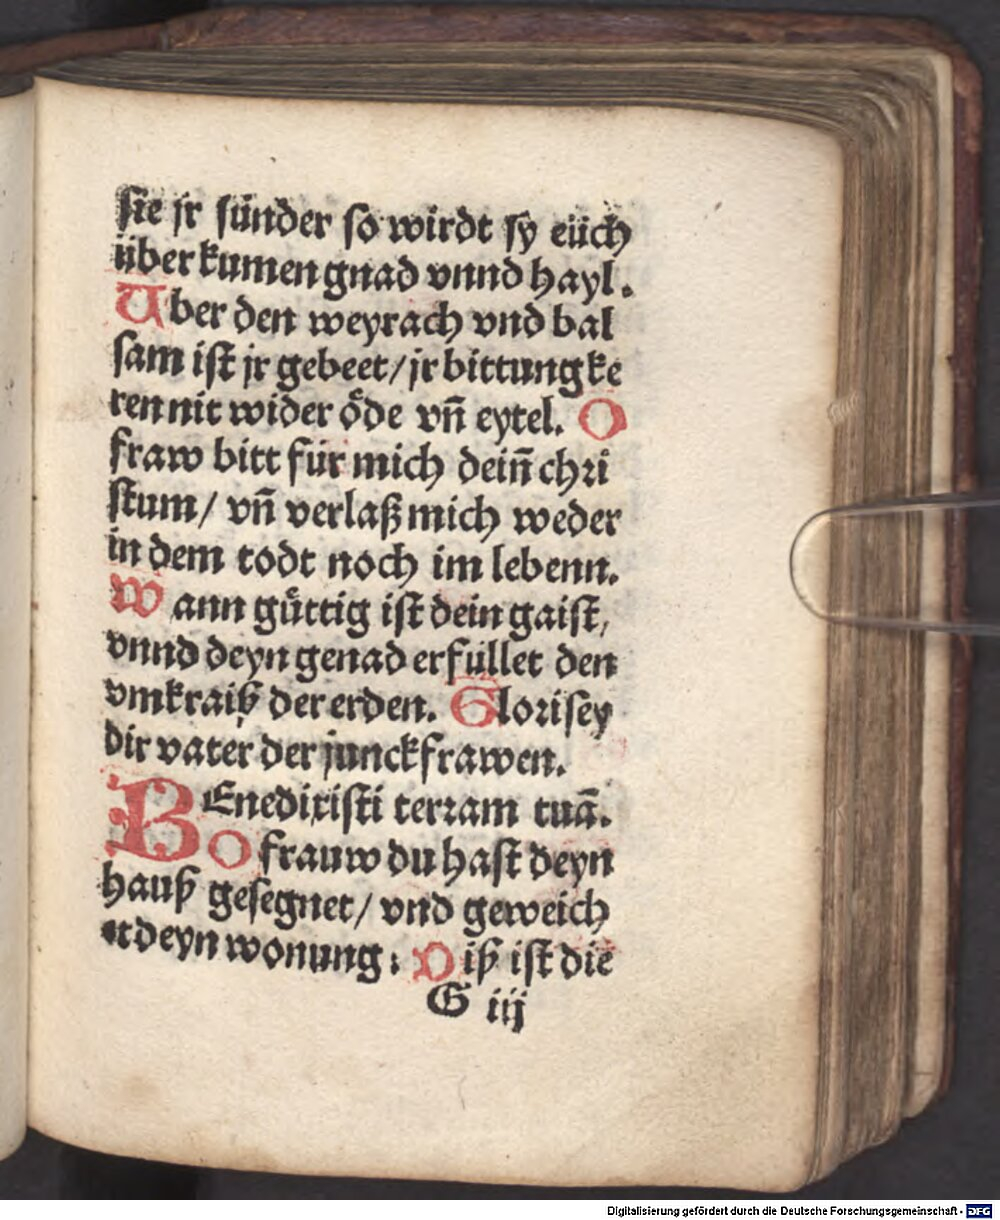 sie jr sünder so wirdt sy eüch
überkumen gnad vnnd hayl.
Uber den weyrach vnd bal
sam ist jr gebeet/ jr bittung ke
ren nit wider öde vñ eytel. O
fraw bitt für mich deiñ chri
stum/ vñ verlaß mich weder
in dem todt noch im lebenn.
Wann güttig ist dein gaist,
vnnd deyn genad erfüllet den
vmkraiß der erden. Glori sey
dir vater der junckfrawen.
BEnedixisti terram tuā.
O frauw du hast deyn
hauß gesegnet/ vnd geweich
et deyn wonung: Diß ist die
G iij
Digitalisierung gefördert durch die Deutsche Forschungsgemeinschaft - DFG